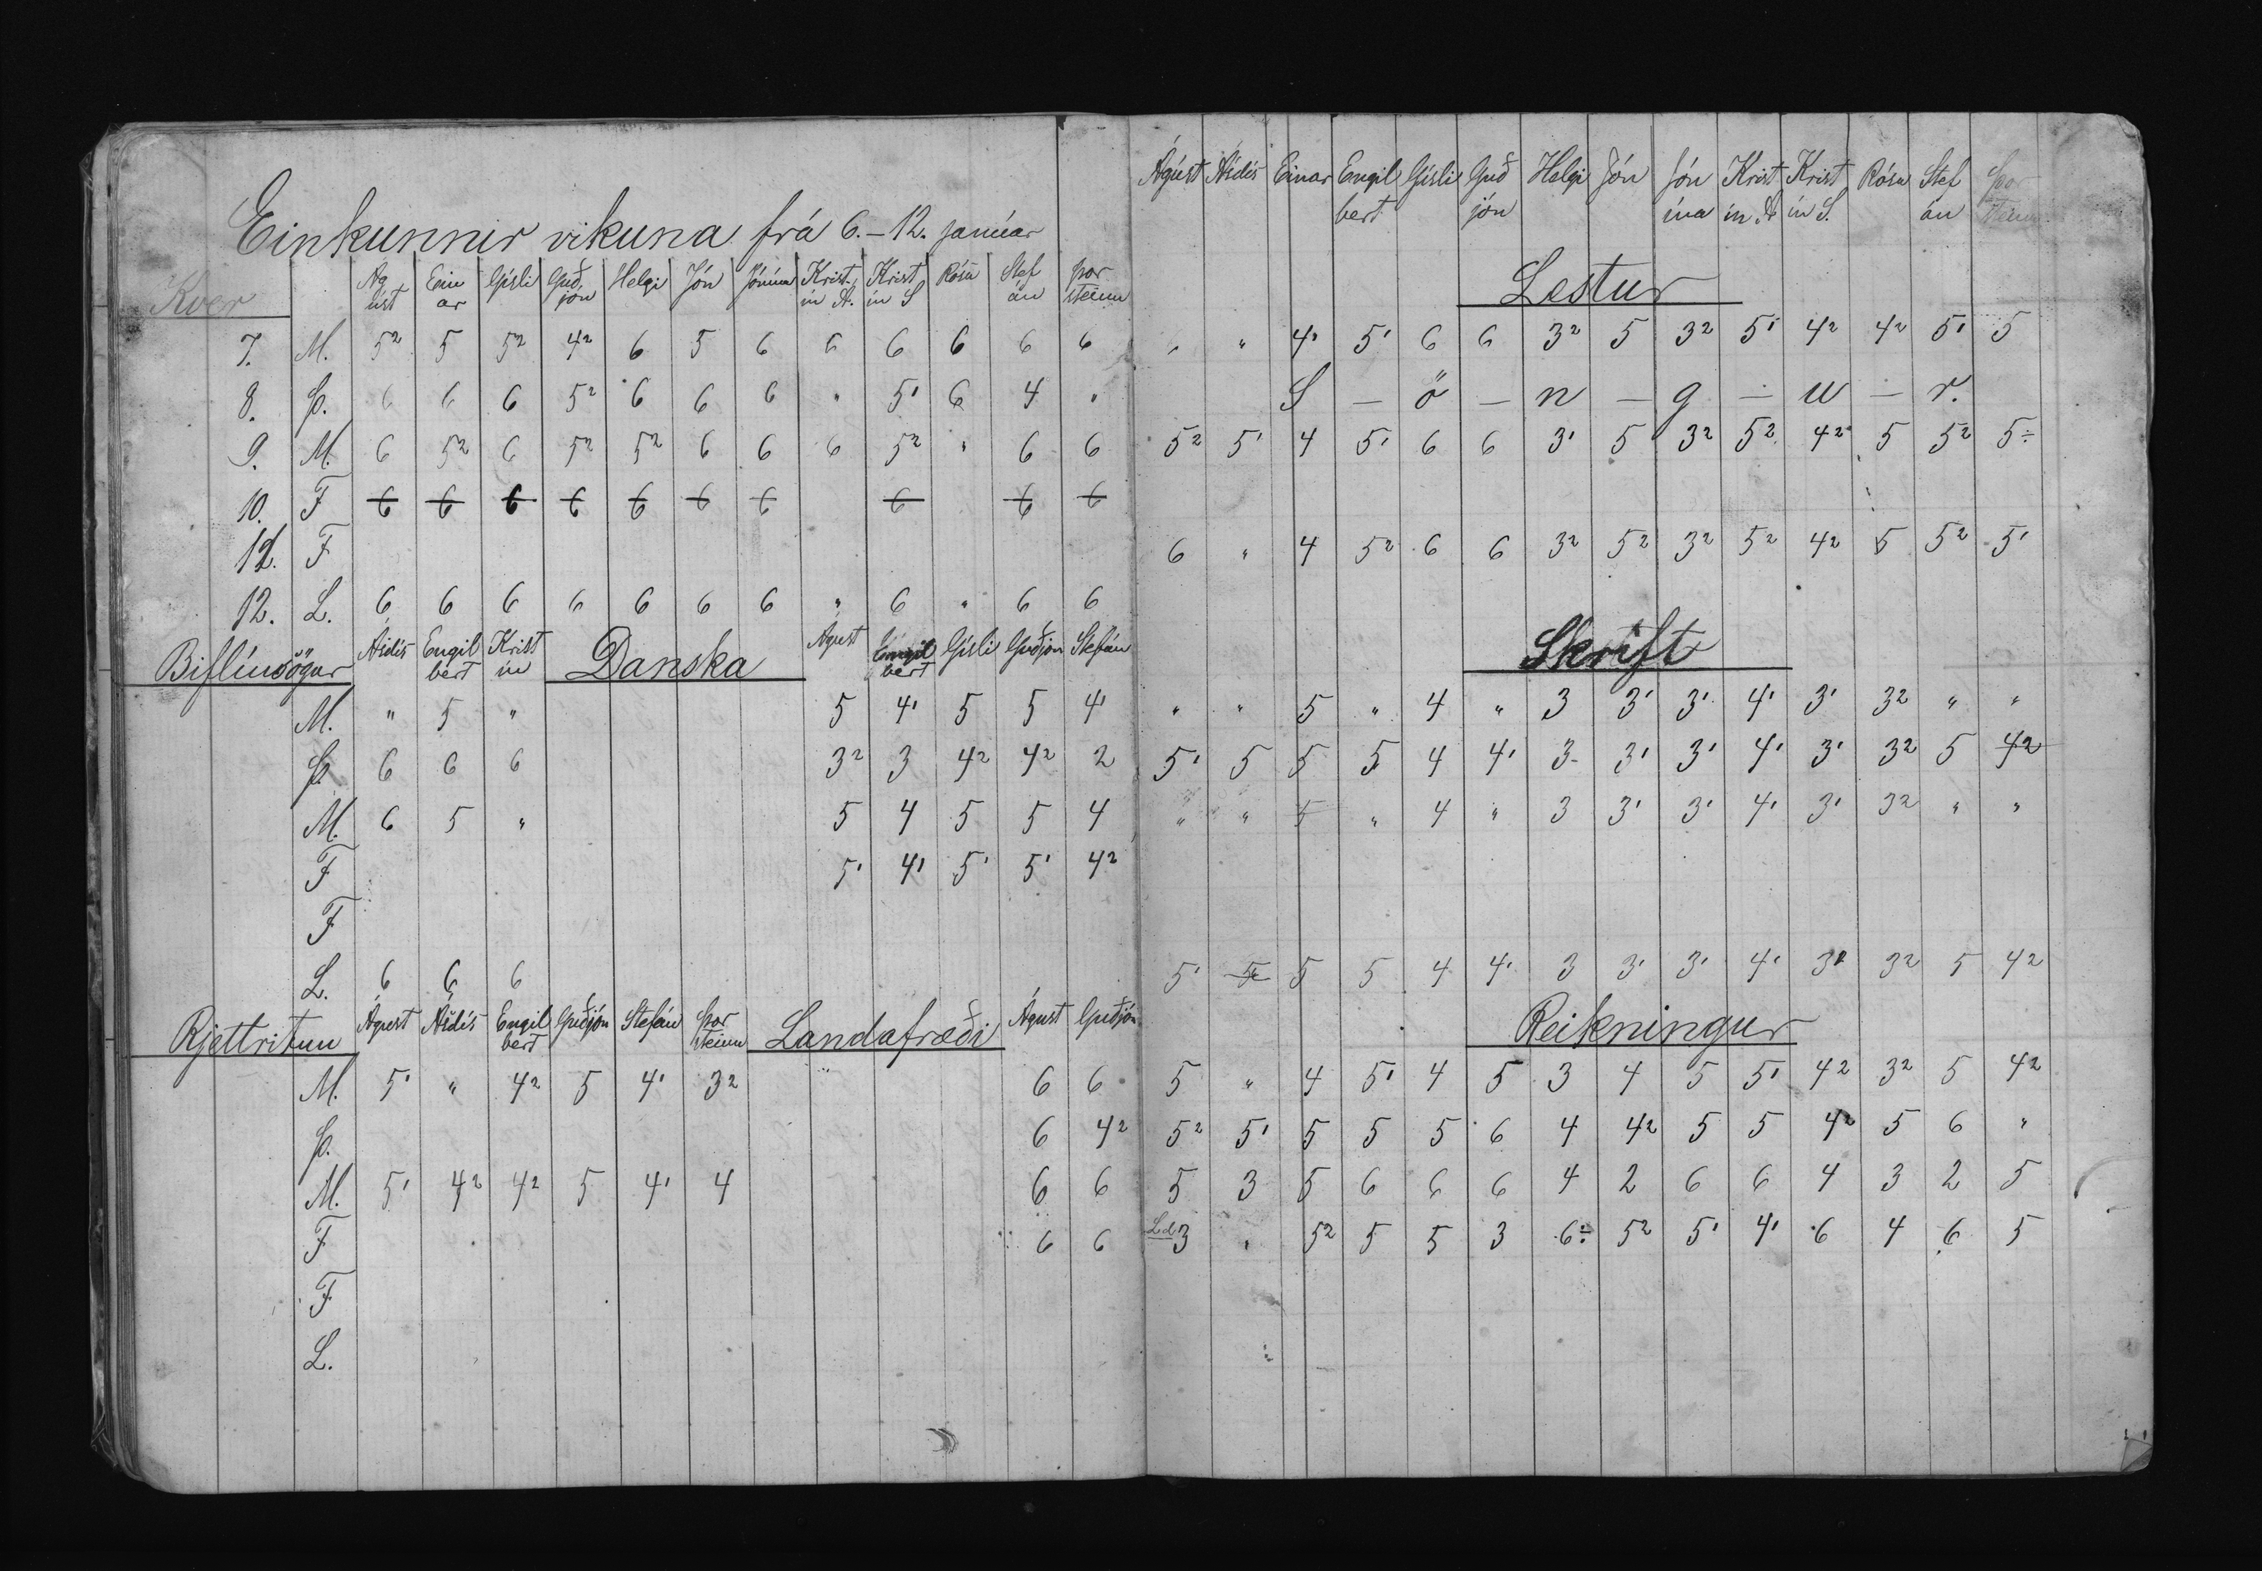 Einkunnir vikuna frá 6.–12. janúar
Kver Ágúst Einar Gísli Guðjón Helgi Jón Jónína Kristín A. Kristín S Rósa Stefán Þorsteinn
7. M. 5² 5 5² 4² 6 5 6 6 6 6 6 6
8. Þ. 6 6 6 5² 6 6 6 " 5¹ 6 4 "
9. M. 6 5² 6 5² 5² 6 6 6 5² " 6 6
10. F 6 6 6 6 6 6 6 6 6 6
11. F
12. L. 6 6 6 6 6 6 6 " 6 " 6 6
Biflíusögur Ásdís Engilbert Kristín Danska Ágúst Engilbert Gísli Guðjón Stefán
M. " 5 " 5 4¹ 5 5 4¹
Þ. 6 6 6 3² 3 4² 4² 2
M. 6 5 " 5 4 5 5 4
F 5¹ 4¹ 5¹ 5¹ 4²
F
L. 6 6 6
Rjettritun Ágúst Ásdís Engilbert Guðjón Stefán Þorsteinn Landafræði Ágúst Guðjón
M. 5¹ " 4² 5 4¹ 3² 6 6
Þ. 6 4²
M. 5¹ 4² 4² 5 4¹ 4 6 6
F 6 6
F
L.
Ágúst Ásdís Einar Engilbert Gísli Guðjón Helgi Jón Jónína Kristín A Kristín S. Rósa Stefán Þorsteinn
Lestur
6 " 4¹ 5¹ 6 6 3² 5 3² 5¹ 4² 4² 5¹ 5
S – ö – n – g – u – r.
5² 5¹ 4 5¹ 6 6 3¹ 5 3² 5² 4² 5 5² 5÷
6 " 4 5² 6 6 3² 5² 3² 5² 4² 5 5² 5¹
Skrift
" " 5 " 4 " 3 3¹ 3¹ 4¹ 3¹ 3² " "
5¹ 5 5 5 4 4¹ 3 3¹ 3¹ 4¹ 3¹ 3² 5 4²
" " 5 " 4 " 3 3¹ 3¹ 4¹ 3¹ 3² " "
5¹ 5 5 5 4 4¹ 3 3¹ 3¹ 4¹ 3² 3² 5 4²
Reikningur
5 " 4 5¹ 4 5 3 4 5 5¹ 4² 3² 5 4²
5² 5¹ 5 5 5 6 4 4² 5 5 4² 5 6 "
5 3 5 6 6 6 4 2 6 6 4 3 2 5
Ld 3 " 5² 5 5 3 6÷ 5² 5¹ 4¹ 6 4 6 5